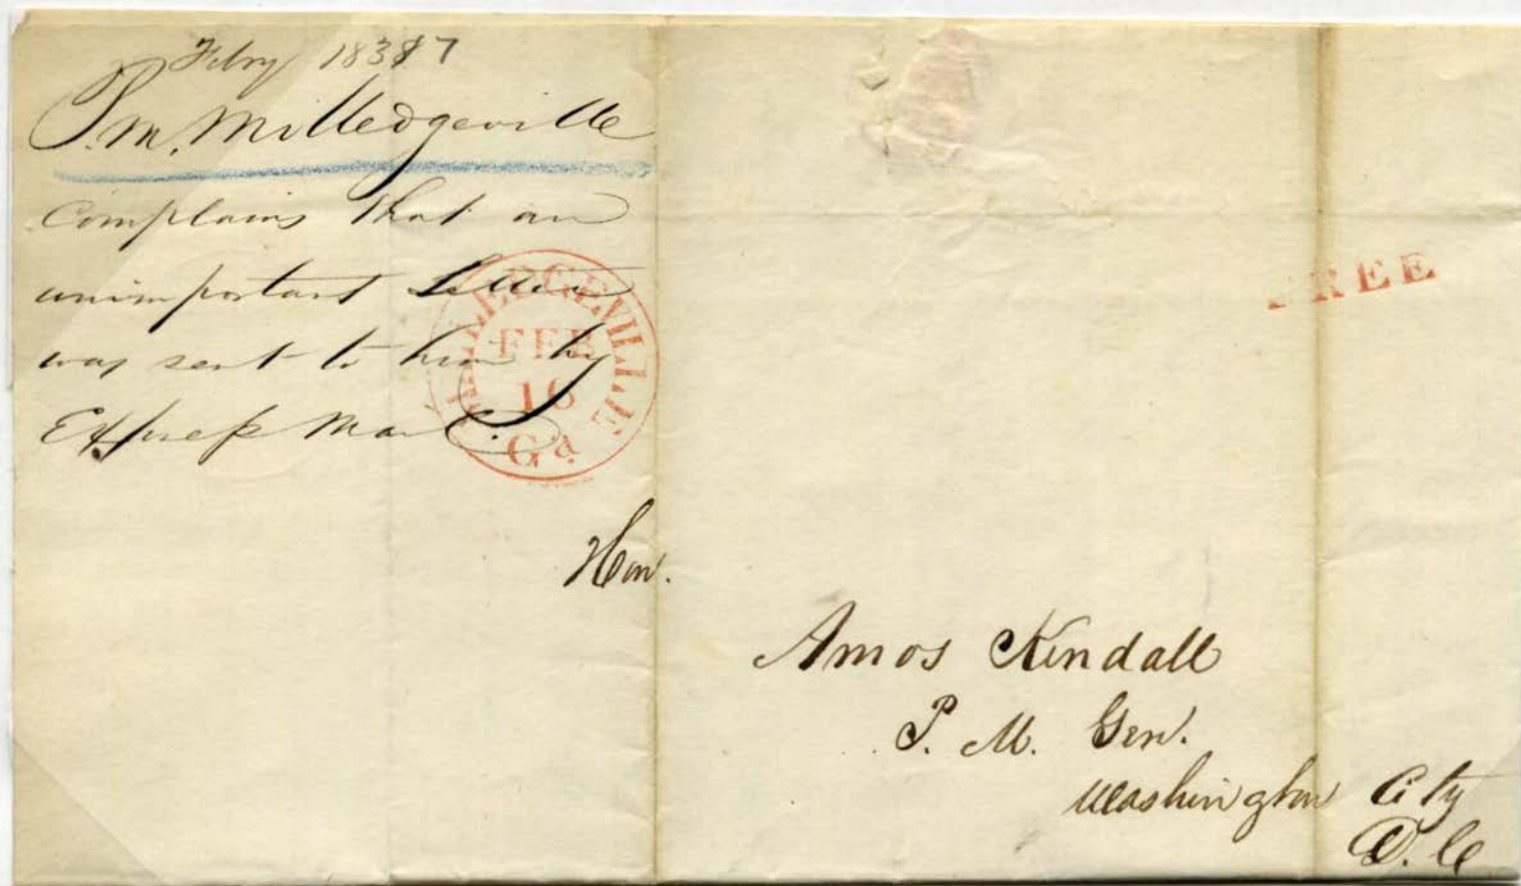 Feby 1837
P.M. Milledgeville
Complains that an
unimportant Letter
was sent to him by
Express Mail.
MILLEDGEVILLE
FEB
16
Ga
FREE
Hon.
Amos Kendall
P. M. Gen.
Washington City
D. C